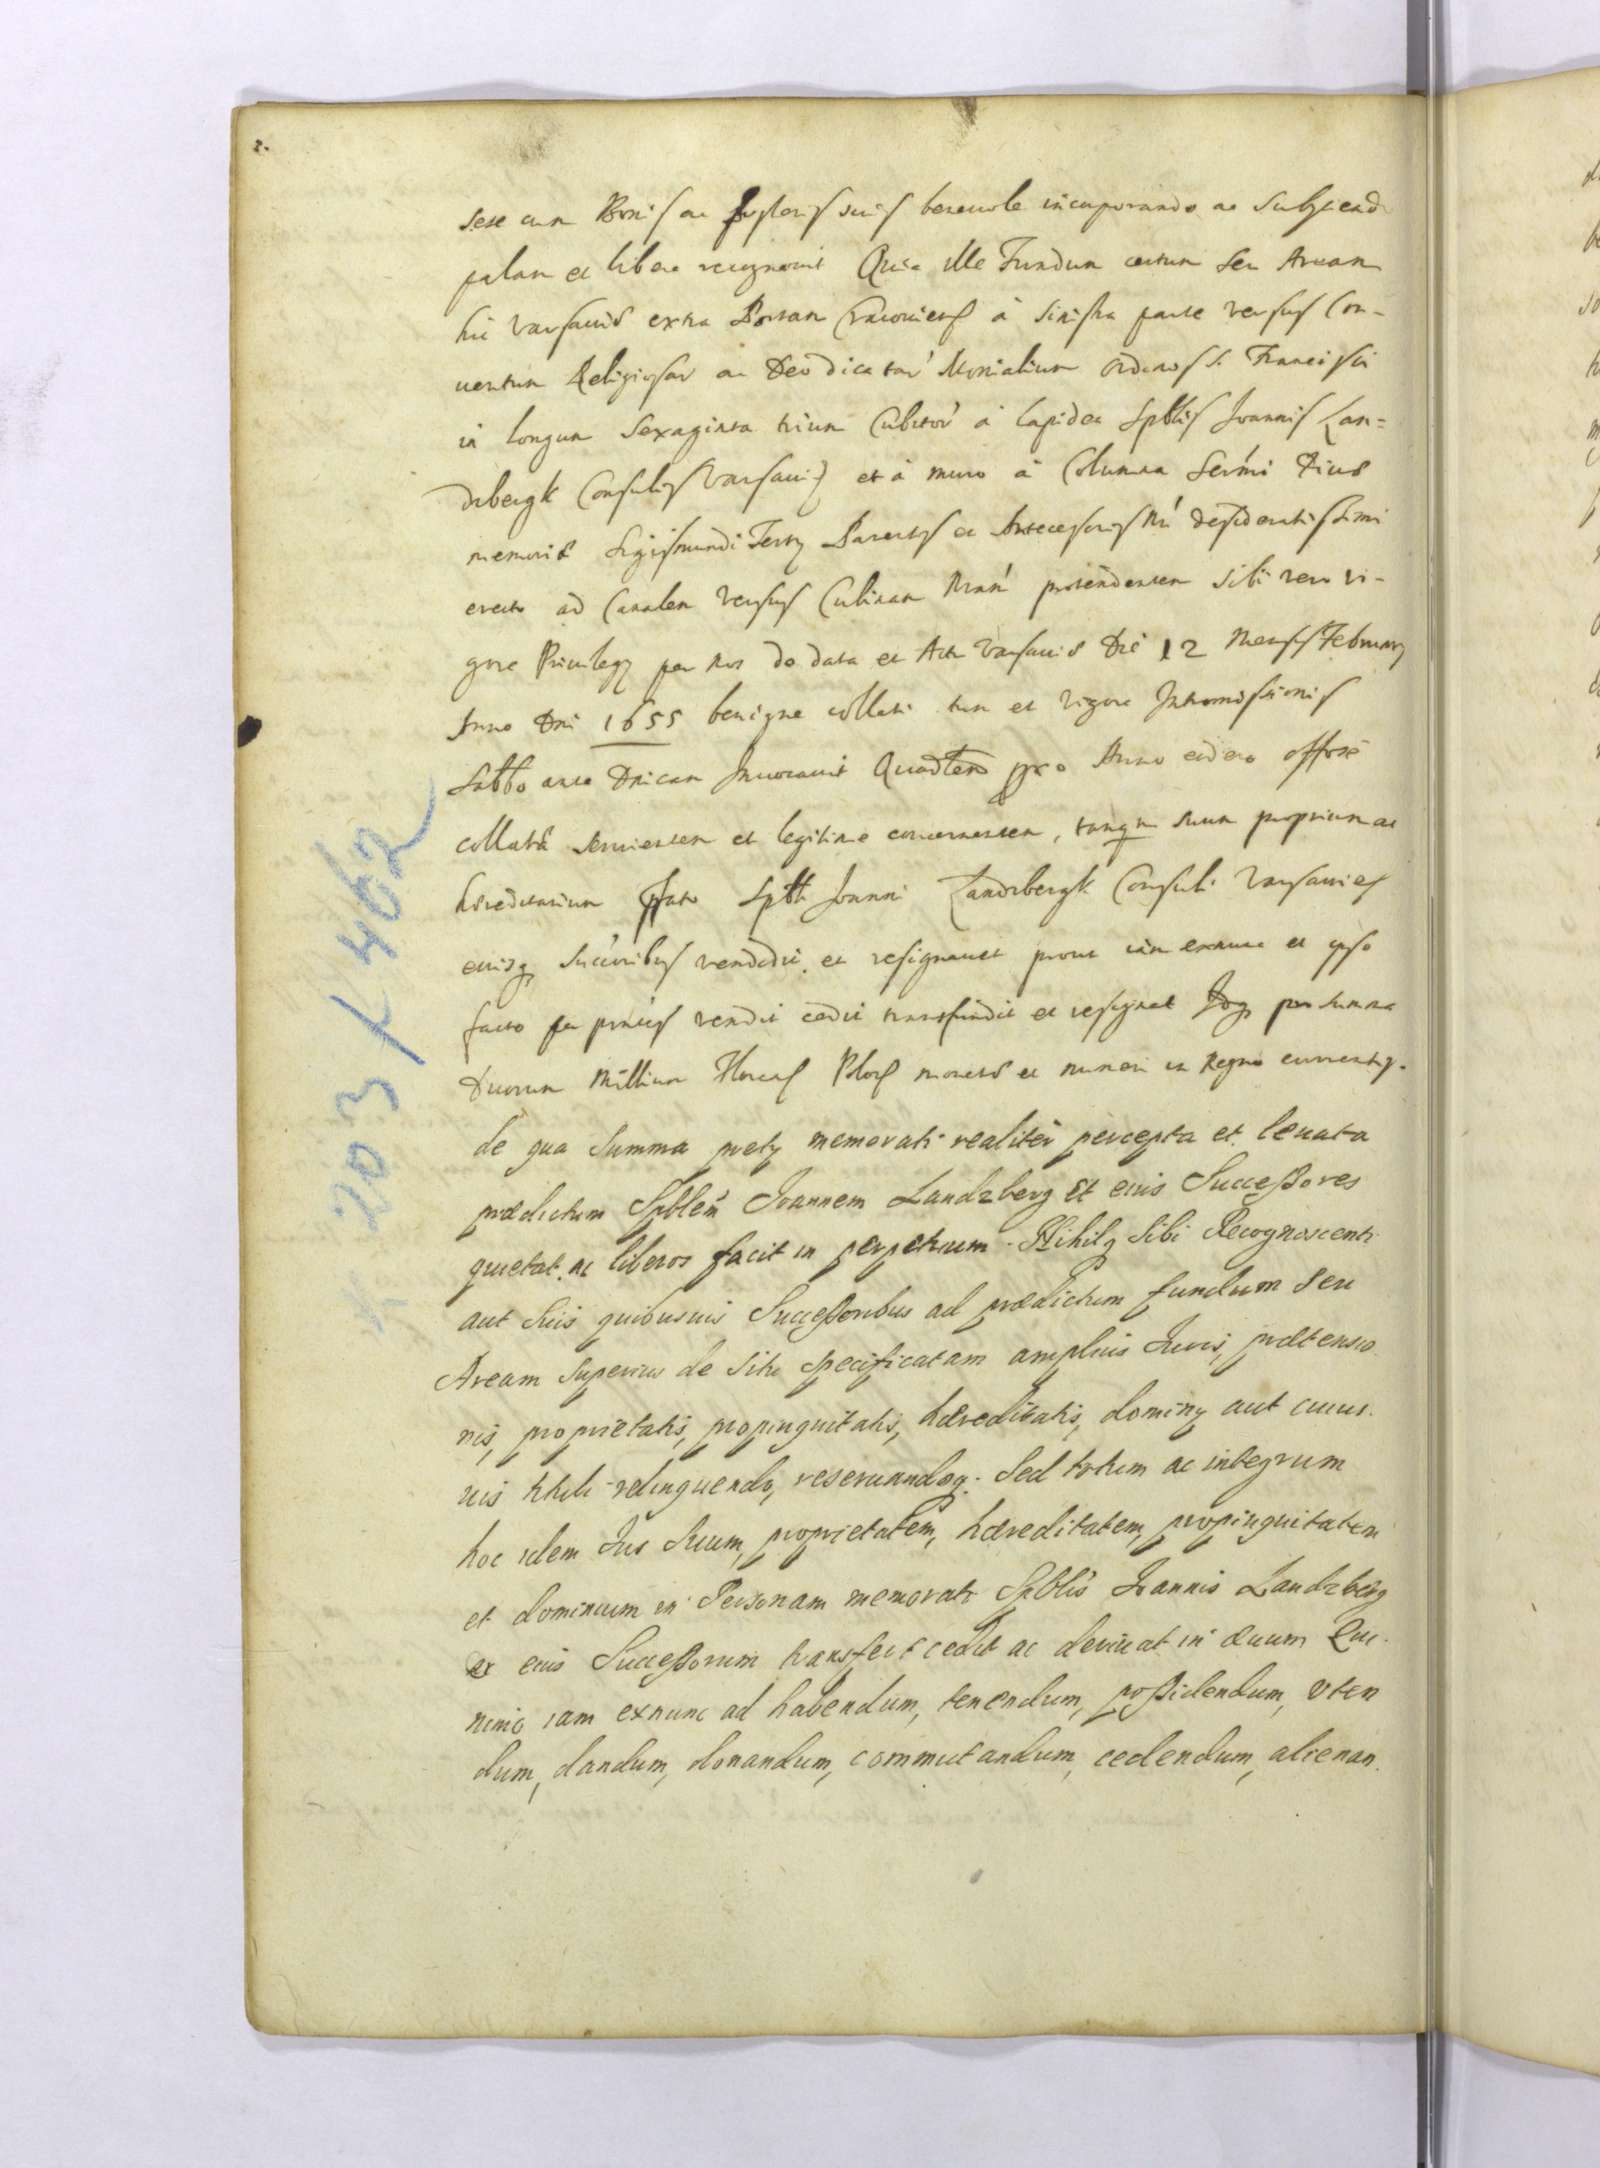 2.
sese cum Bonis ac suis beneuole incorporando ac Subÿciendo
palam et libere recognouit Quia ille Fundum certum seu Aream
hic Varsauiæ extra Portam Cracouiens à sinistra parte versus Con-
uentum Religiosar ac Deo dicatar' Monialium Ordinis S. Francisci
in longum Sexaginta trium Cubitor' à lapidea Spblis Joannis Lan=
dzbergk Consulis Varsauien et à muro à Columna Ser'mi Diuæ
memoriæ Sigismundi Tertÿ Parentis et Antecessoris Nri desideratissimi
erecto ad Canalem versus Culinam Nram' protendentem sibi vero vi-
gore Priuilegÿ per Nos de data et Actu Varsauiæ Die 12 Mensis Februarÿ
Anno Dni 1655 benigne collati tum et vigore Intromissionis
Sabbo ante Dnicam Inuocauit Anno eodem
collatæ seruientem et legitime concernentem, tanqm suum proprium ac
hæreditarium pfato Spbli Joanni Landzbergk Consuli Varsauien
eiusq Succ'oribus vendidit et resignauit prout iam exnunc et ipso
facto per pntes vendit cedit transfundit et resignat Idq pro Summa
Duorum Millium Floren Polon monetæ et numeri in Regno currentis.
de qua Summa pretÿ memorati realiter percepta et leuata
prædictum Spblem Joannem Landzberg et eius Successores
quietat ac liberos facit in perpetuum. Nihilq Sibi Recognoscenti
aut Suis quibusuis Successoribus ad prædictum fundum seu
Aream superius de situ specificatam amplius Iuris, prætensio
nis, proprietatis, propinquitatis, hæreditatis, dominÿ aut cuius
uis tituli relinquendo, reseruandoq. Sed totum ac integrum
hoc idem Ius Suum, proprietatem, hæreditatem, propinquitatem
et dominium in Personam memorati Spblis Joannis Landzberg
et eius Successorum transfert cedit ac deriuat in æuum Qui
nimo iam exnunc ad habendum, tenendum, possidendum, vten
dum, dandum, donandum, commutandum, cedendum, alienan
K 203/462